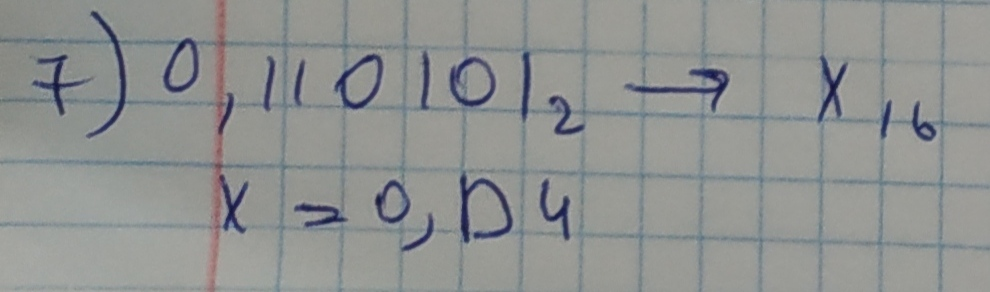 7) 0,110101₂ → X₁₆
X = 0,D4